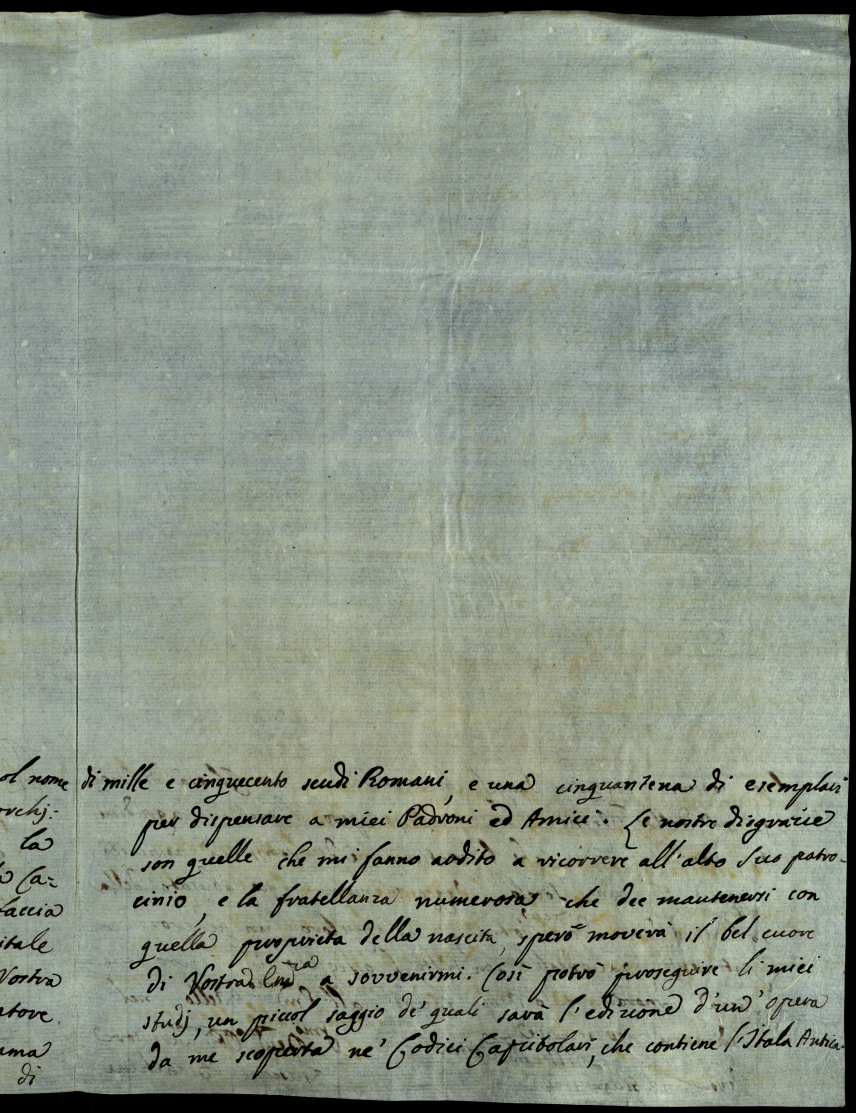 ol nome
orchj:
la
Ca:
faccia
itale
Vostra
atore
ama
di
di mille e cinquecento scudi Romani, e una cinquantena di esemplari
per dispensare a miei Padroni ed Amici. Le nostre disgrazie
son quelle che mi fanno ardito a ricorrere all'alto Suo patro-
cinio, e la fratellanza numerosa, che dee mantenersi con
quella proprietà della nascita, spero moverà il bel cuore
di Vostra Emza a sovvenirmi. Così potrò proseguire li miei
studj, un piccol saggio de' quali sarà l'edizione d'un' opera
da me scoperta ne' Codici Capitolari, che contiene l'Itala Antica.